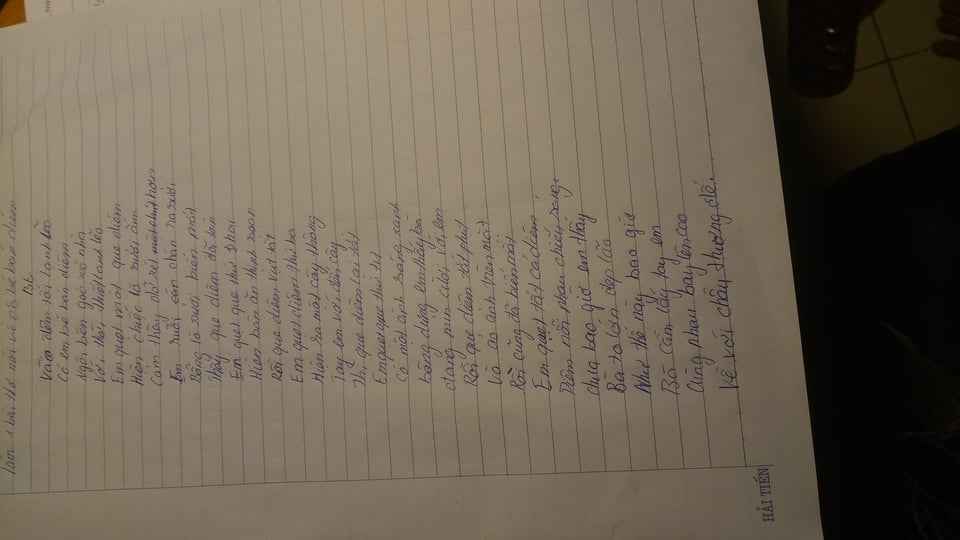 Làm 1 bài thơ nói về cô bé bán diêm
BL
Vào đêm rồi lạnh lẽo
Có em bé bán diêm
Ngồi bên góc xó nhỏ
Với thời tiết lạnh lẽo
Em quẹt một que diêm
Hiện chiếc lò sưởi ấm
Cảm thấy dễ xịt hơn
Em duỗi cẳn chân ra sưởi
Bỗng lò sưởi biến mất
Thấy que diêm đã tàn
Em quẹt que thứ 2
Hiện bàn ăn thịnh soạn
Rồi que diêm vụt tắt
Em quẹt diêm thứ ba
Hiện ra một cây thông
Tay em với đến cây
Thì que diêm lại tắt
Em quẹt que thứ tư
Có một ánh sáng xanh
Bỗng dưng em thấy bà
đang mỉm cười với em
Rồi que diêm tắt phụt
Và ảo ảnh trên mặt
Rồi cũng đã biến mất
Em quẹt tất cả diêm
Diêm nối nhau chiếu sáng
chưa bao giờ em thấy
Bà to lớn đẹp lão
Như thế này bao giờ
Bà cầm lấy tay em
Cùng nhau bay lên cao
Về với chầu thượng đế.
HẢI TIẾN